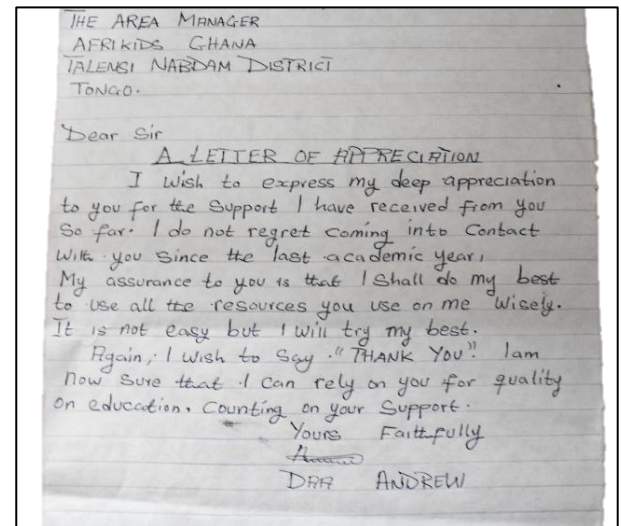 THE AREA MANAGER
AFRIKIDS GHANA
TALENSI NABDAM DISTRICT
TONGO.
Dear Sir
A LETTER OF APPRECIATION
I wish to express my deep appreciation
to you for the Support I have received from you
So far. I do not regret coming into Contact
With you Since the last academic year,
My assurance to you is that I Shall do my best
to use all the resources you use on me Wisely.
It is not easy but I will try my best.
Again, I wish to Say "THANK YOU". Iam
now Sure that I can rely on you for quality
on education, Counting on your Support.
Yours Faithfully
DAA ANDREW